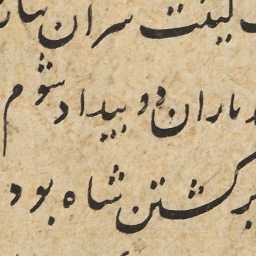 لینت سران
باران دو بیداد شوم
برکشتن شاه بود